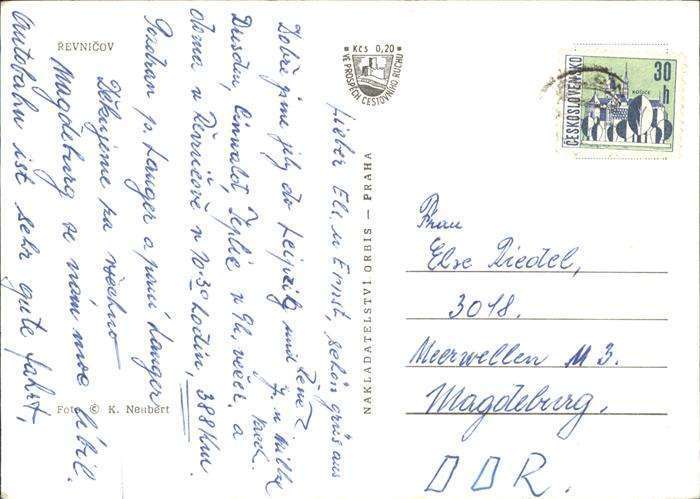 ŘEVNIČOV
Kčs 0,20
VE PROSPĚCH CESTOVNÍHO RUCHU
ČESKOSLOVENSKO
30 h
KOŠICE
Lieber Els. u Ernst, schön grüs aus
Dobře jsme jely do Leipzig und
Dresden, Cinnvald, Teplic v 9h. večer, a
doma v Řevničově v 10.30 hodin, 388 Km.
Pozdrav p. Langer a paní Langer
Děkujeme za všechno
Magdeburg se nám moc líbil.
Autobahn ist sehr gute fahrt,
NAKLADATELSTVÍ ORBIS — PRAHA
Foto © K. Neubert
Frau
Else Riedel,
3018.
Meerwellen M 3.
Magdeburg.
DDR.